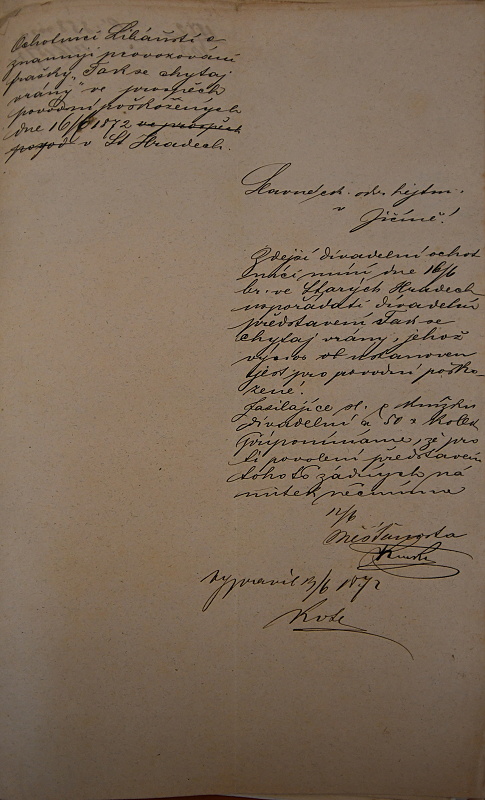 Ochotníci Libáňští o
znamují provozování
frašky "Tak se chytaj
vrány" ve prospěch
povodní poškožených
dne 16/6 1872 ve prospěch
v St Hradech.
Slavné c.k. okr. hejtm.
v
Jičíně!
Zdejší divadelní ochot
níci míní dne 16/6
br. ve Starých Hradech
uspořádati divadelní
představení Tak se
chytaj vrány, jehož
výnos ustanoven
jest pro povodní poško
žené.
Zasílajíce sl. knížku
divadelní a 50 x kolek
připomínáme, že pro
ti povolení představení
tohoto žádných ná
mitek nečiníme
12/6
Měšťanosta
Vypravil 13/6 1872